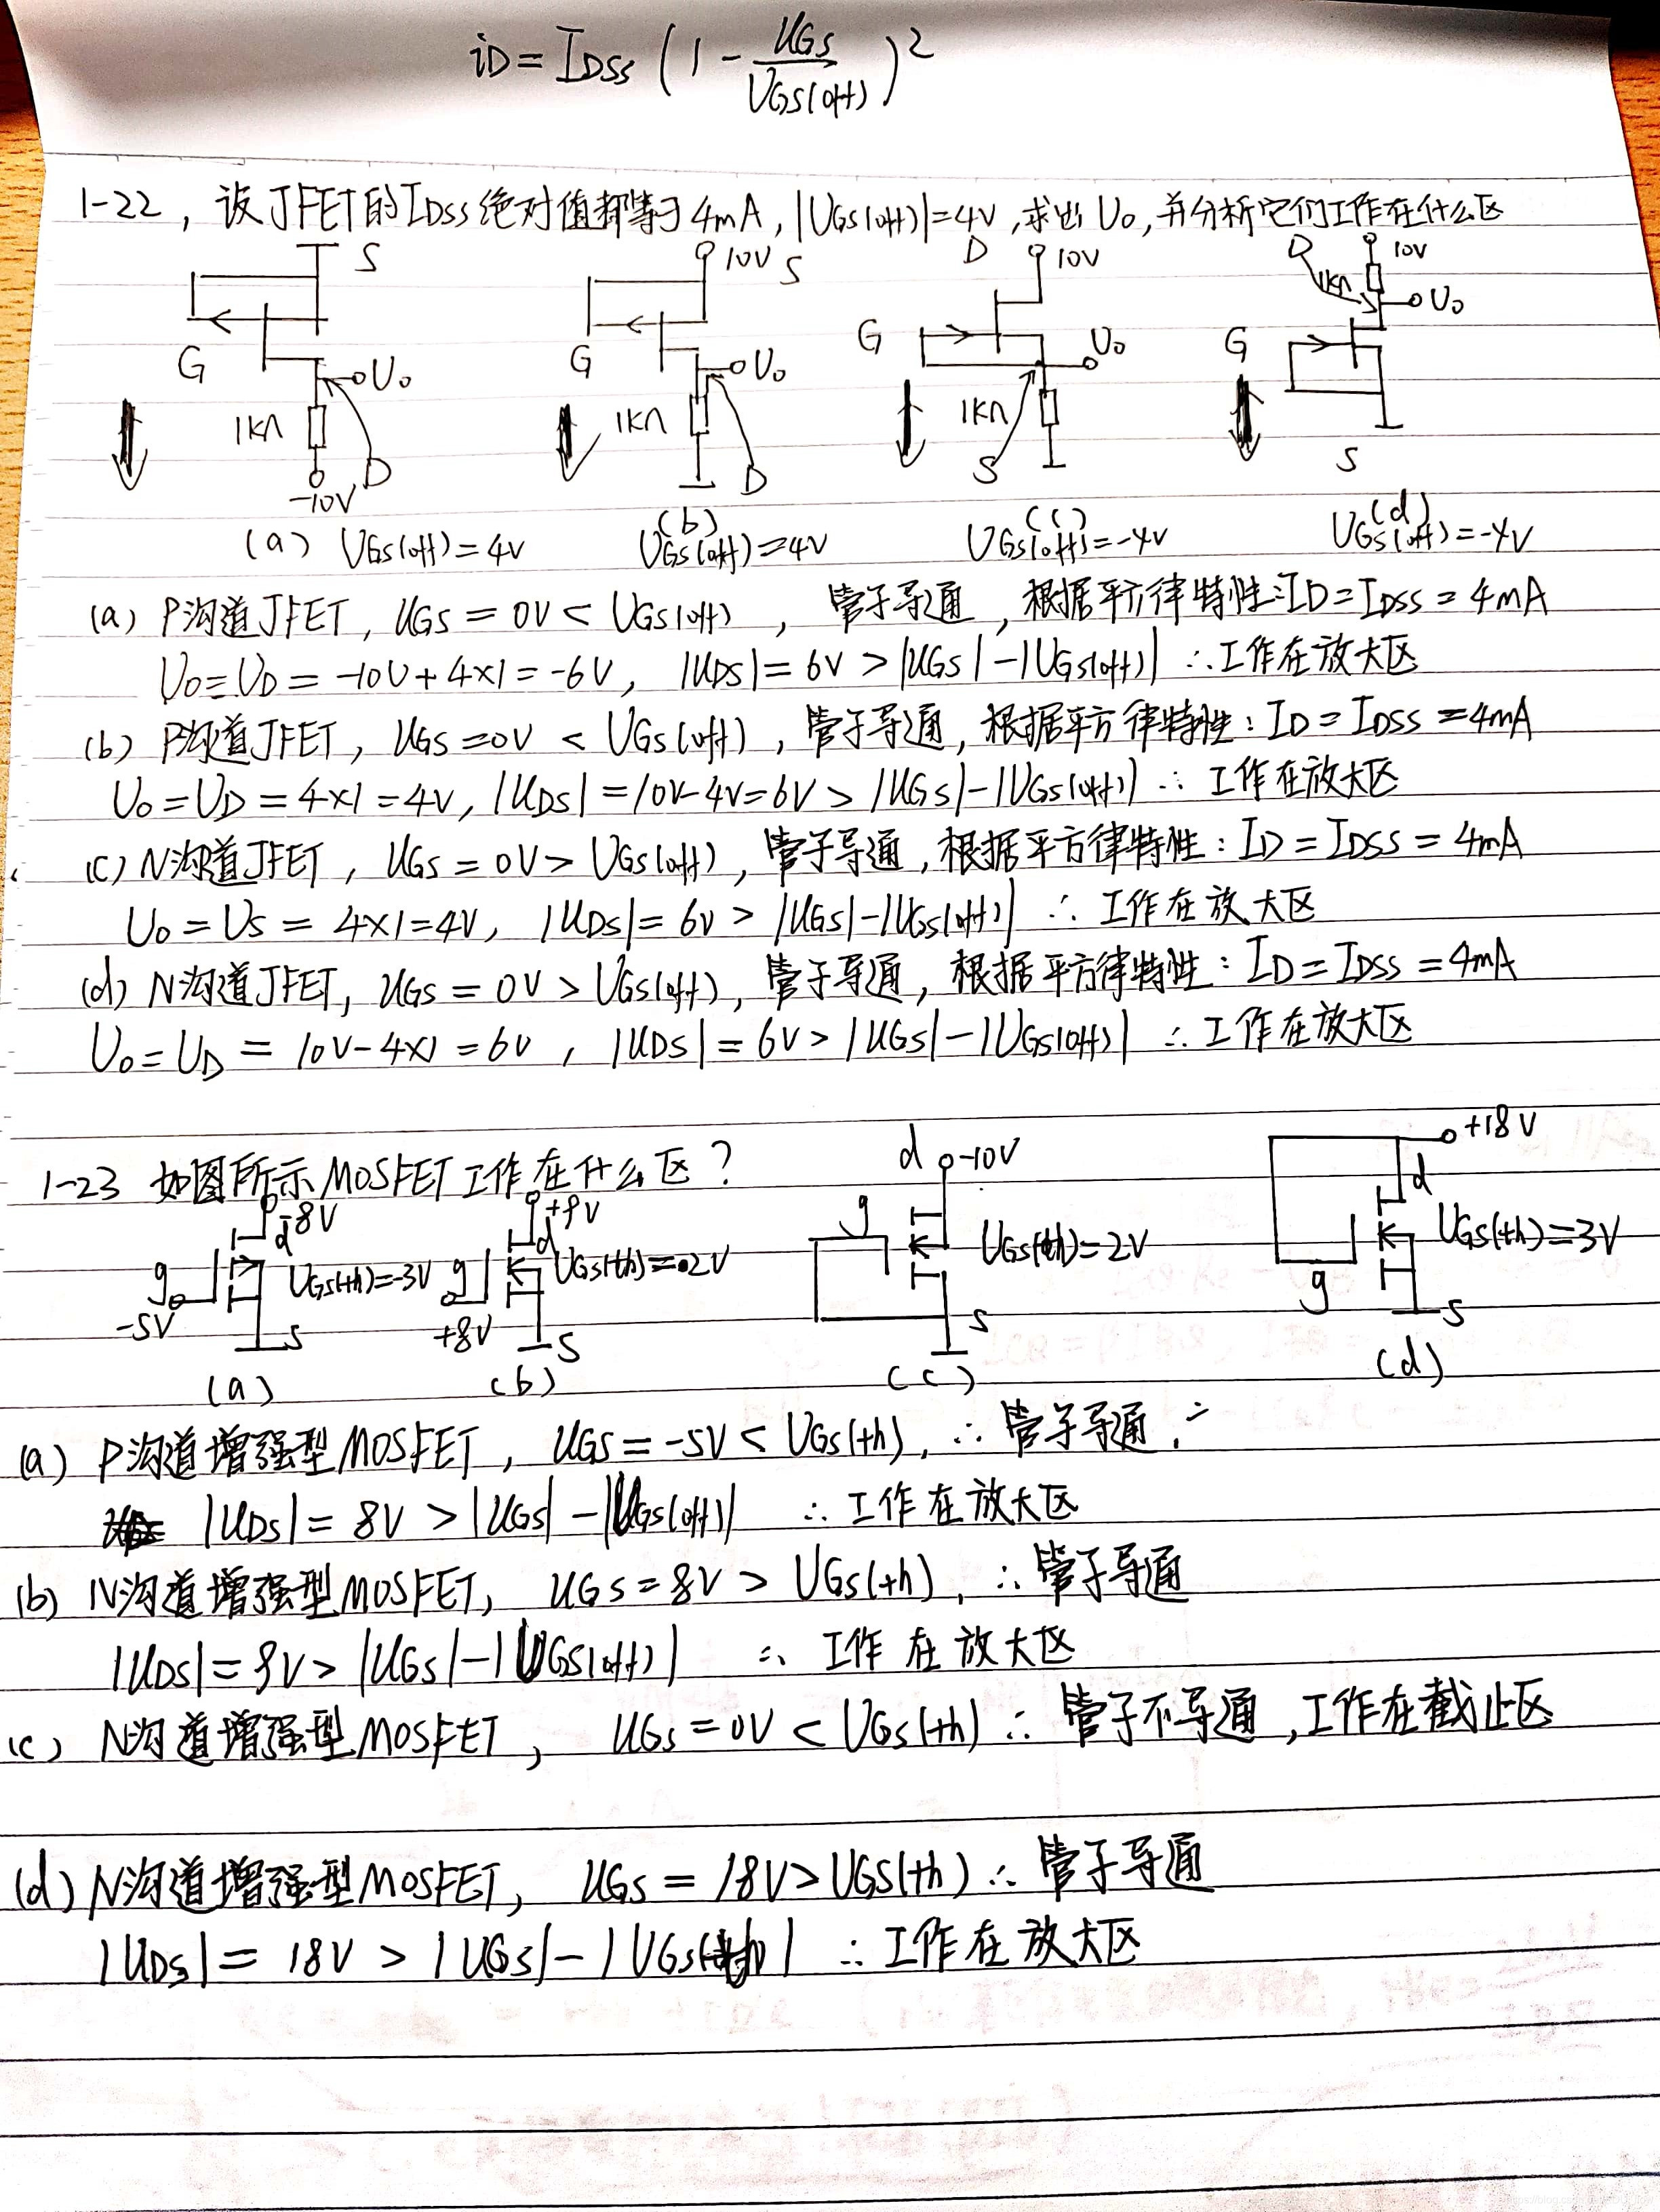 iD = IDSS (1 - UGS/UGS(off))²
1-22, 设JFET的IDSS绝对值都等于4mA, |UGS(off)|=4V, 求出Uo, 并分析它们工作在什么区
S 10V S D 10V D 10V
1KΩ Uo
G Uo G Uo G Uo G
1KΩ 1KΩ 1KΩ
D D S S
-10V
(a) UGS(off)=4V (b) UGS(off)=4V (c) UGS(off)=-4V (d) UGS(off)=-4V
(a) P沟道JFET, UGS = 0V < UGS(off), 管子导通, 根据平方律特性:ID=IDSS=4mA
Uo=UD = -10V+4×1=-6V, |UDS|=6V >|UGS|-|UGS(off)| ∴工作在放大区
(b) P沟道JFET, UGS=0V < UGS(off), 管子导通, 根据平方律特性: ID=IDSS=4mA
Uo=UD=4×1=4V, |UDS|=10V-4V=6V>|UGS|-|UGS(off)| ∴ 工作在放大区
(c) N沟道JFET, UGS=0V> UGS(off), 管子导通, 根据平方律特性: ID=IDSS=4mA
Uo=US= 4×1=4V, |UDS|=6V >|UGS|-|UGS(off)| ∴ 工作在放大区
(d) N沟道JFET, UGS=0V > UGS(off), 管子导通, 根据平方律特性: ID=IDSS=4mA
Uo=UD = 10V-4×1=6V, |UDS|=6V>|UGS|-|UGS(off)| ∴工作在放大区
1-23 如图所示MOSFET工作在什么区?
-8V +9V d -10V +18V
d d g d
g UGS(th)=-3V g UGS(th)=2V UGS(th)=2V UGS(th)=3V
-5V S +8V S S g S
(a) (b) (c) (d)
(a) P沟道增强型MOSFET, UGS=-5V< UGS(th), ∴管子导通,
|UDS|= 8V >|UGS|-|UGS(off)| ∴工作在放大区
(b) N沟道增强型MOSFET, UGS=8V > UGS(th), ∴管子导通
|UDS|=9V>|UGS|-|UGS(off)| ∴ 工作在放大区
(c) N沟道增强型MOSFET, UGS=0V < UGS(th) ∴ 管子不导通, 工作在截止区
(d) N沟道增强型MOSFET, UGS = 18V>UGS(th) ∴ 管子导通
|UDS|= 18V > |UGS|-|UGS(th)| ∴工作在放大区